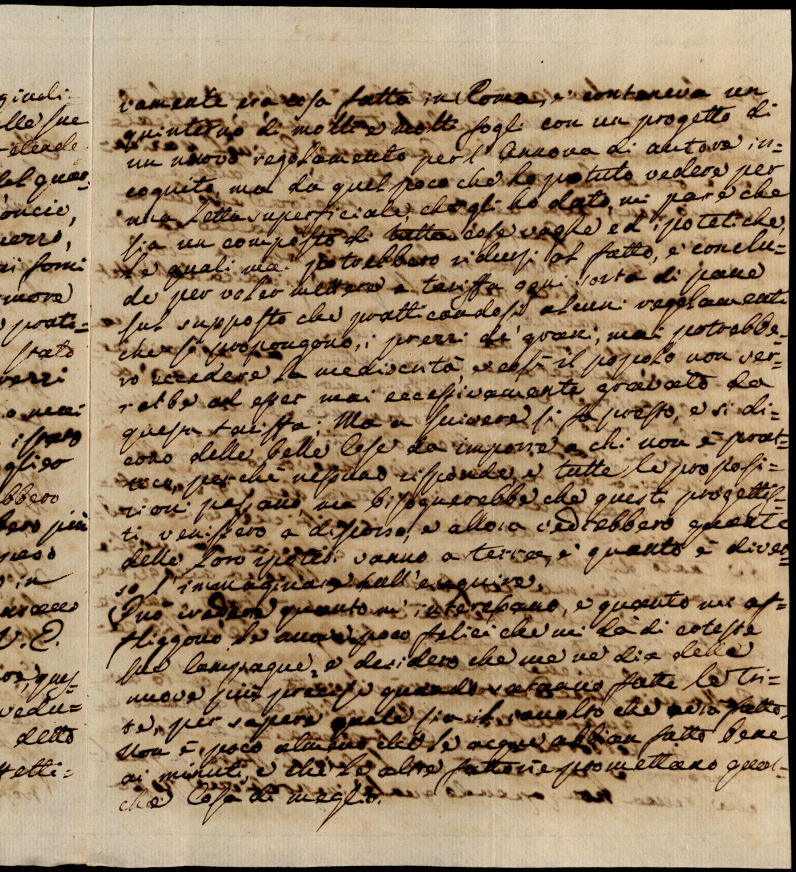 giudi-
elle sue
del quar-
oncie,
prati-
stato
prezzi
o mai
bbero
bbero più
peso
in
V. E.
vedu-
detto
vamente era cosa fatta in Roma, e conteneva un
quinterno di molti e molti fogli con un progetto di
un nuovo regolamento per l'Annona di autore in-
cognito, ma da quel poco che ho potuto vedere per
una letta superficiale, che gli ho dato, mi pare che
sia un composto di tutte cose vaghe ed ipotetiche,
le quali mai potrebbero ridursi al fatto, e conclu-
de per voler mettere a tariffa ogni sorta di pane
sul supposto che pratticandosi alcuni regolamenti
che si propongono, i prezzi de' grani, mai potrebbe-
ro eccedere la mediocrità e così il popolo non ver-
rebbe ad esser mai eccessivamente gravato da
questa tariffa: Ma a scrivere si fa presto, e si di-
cono delle belle cose da imporre a chi non è prat-
tico, perché nessuno risponde, e tutte le proposi-
zioni passano, ma bisognarebbe che questi progettis-
ti venissero a discorso, e allora vedrebbero quante
delle loro ipotesi vanno a terra, e quanto è diver-
so l'immaginare dall'eseguire.
Può credere quanto m'interessano, e quanto mi af-
fliggono le nuove poco felici che mi dà di coteste
sue campagne, e desidero che me ne dia delle
nuove più precise quando saranno fatte le Tri-
te, per sapere quale sia il raccolto che averà fatto.
Non è poco almeno che le acque abbian fatto bene
ai minuti, e che le altre fattorie promettano qual-
che cosa di meglio.